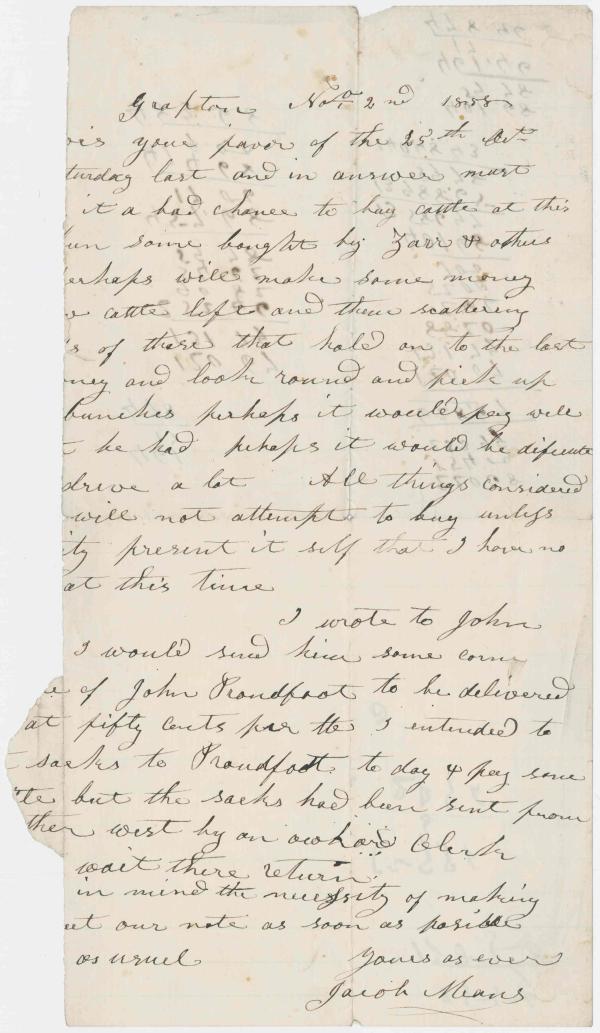 Grafton Nov 2nd 1858
your favor of the 25th
turday last and in answer must
it a bad chance to buy cattle at this
un some bought by Zarr & others
erhaps will make some money
cattle left and them scattering
s of those that hold on to the last
ney and look round and pick up
bunches perhaps it would pay well
be had pehaps it would be dificult
drive a lot All things considered
will not attempt to buy unless
ity present it self that I have no
at this time
I wrote to John
I would send him some corn
e of John Proudfoot to be delivered
at fifty cents per I intended to
sacks to Proudfoot to day & pay some
te but the sacks had been sent from
ther west by an awkard Clerk
wait there return
in mind the necessity of making
et our note as soon as posible
as usuel Yours as ever
Jacob Means